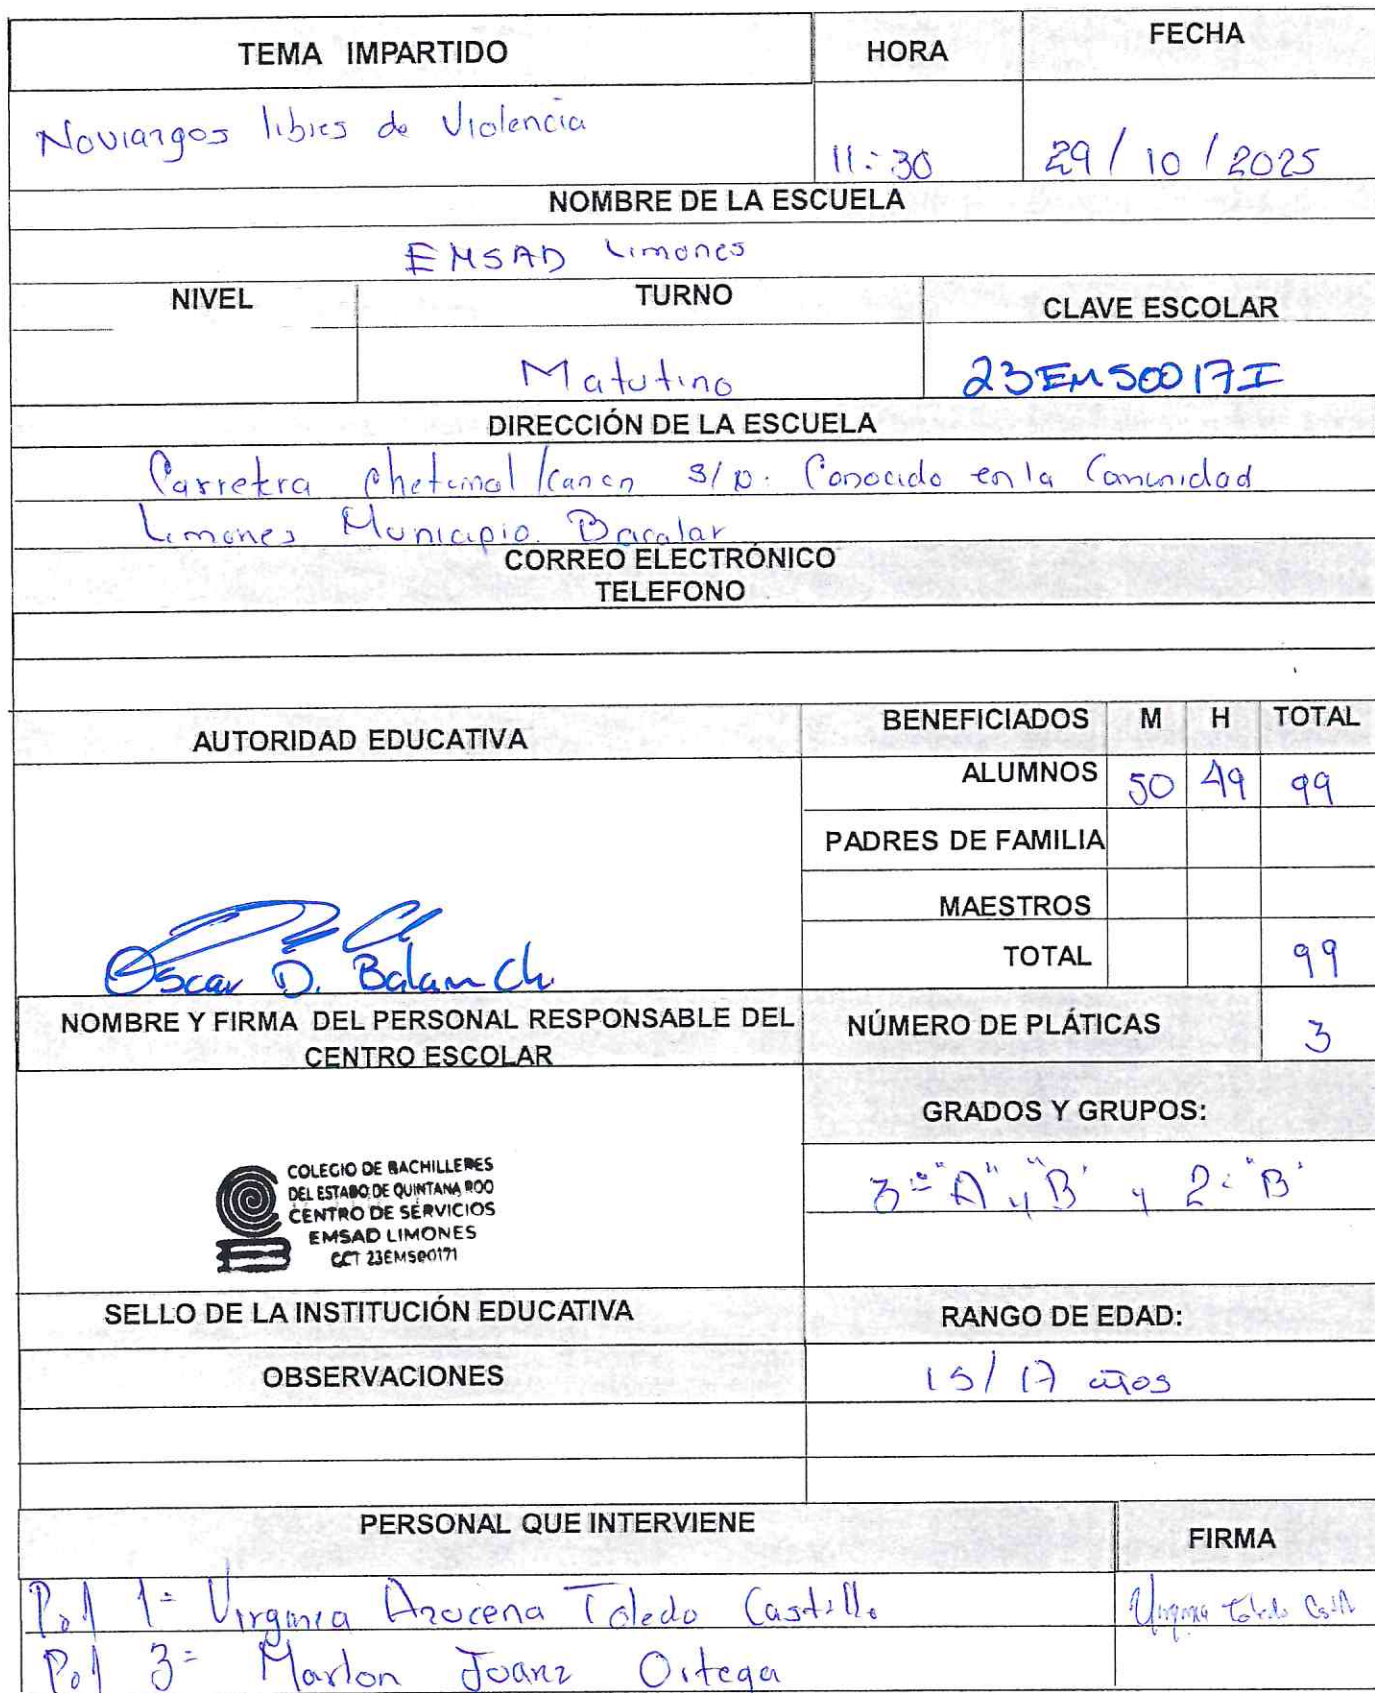 TEMA IMPARTIDO HORA FECHA
Noviazgos libres de Violencia 11:30 29/10/2025
NOMBRE DE LA ESCUELA
EMSAD Limones
NIVEL TURNO CLAVE ESCOLAR
Matutino 23EMS0017I
DIRECCIÓN DE LA ESCUELA
Carretera Chetumal/Cancn S/N. Conocido en la Comunidad
Limones Municipio. Bacalar
CORREO ELECTRÓNICO
TELEFONO
AUTORIDAD EDUCATIVA BENEFICIADOS M H TOTAL
ALUMNOS 50 49 99
PADRES DE FAMILIA
MAESTROS
Oscar D. Balam Ch. TOTAL 99
NOMBRE Y FIRMA DEL PERSONAL RESPONSABLE DEL CENTRO ESCOLAR NÚMERO DE PLÁTICAS 3
GRADOS Y GRUPOS:
3º "A" y "B" y 2º "B"
COLEGIO DE BACHILLERES
DEL ESTADO DE QUINTANA ROO
CENTRO DE SERVICIOS
EMSAD LIMONES
CCT 23EMS00171
SELLO DE LA INSTITUCIÓN EDUCATIVA RANGO DE EDAD:
OBSERVACIONES 15/17 años
PERSONAL QUE INTERVIENE FIRMA
Pol 1º Virginia Azucena Toledo Castillo Virginia Toledo
Pol 3º Marlon Ortega